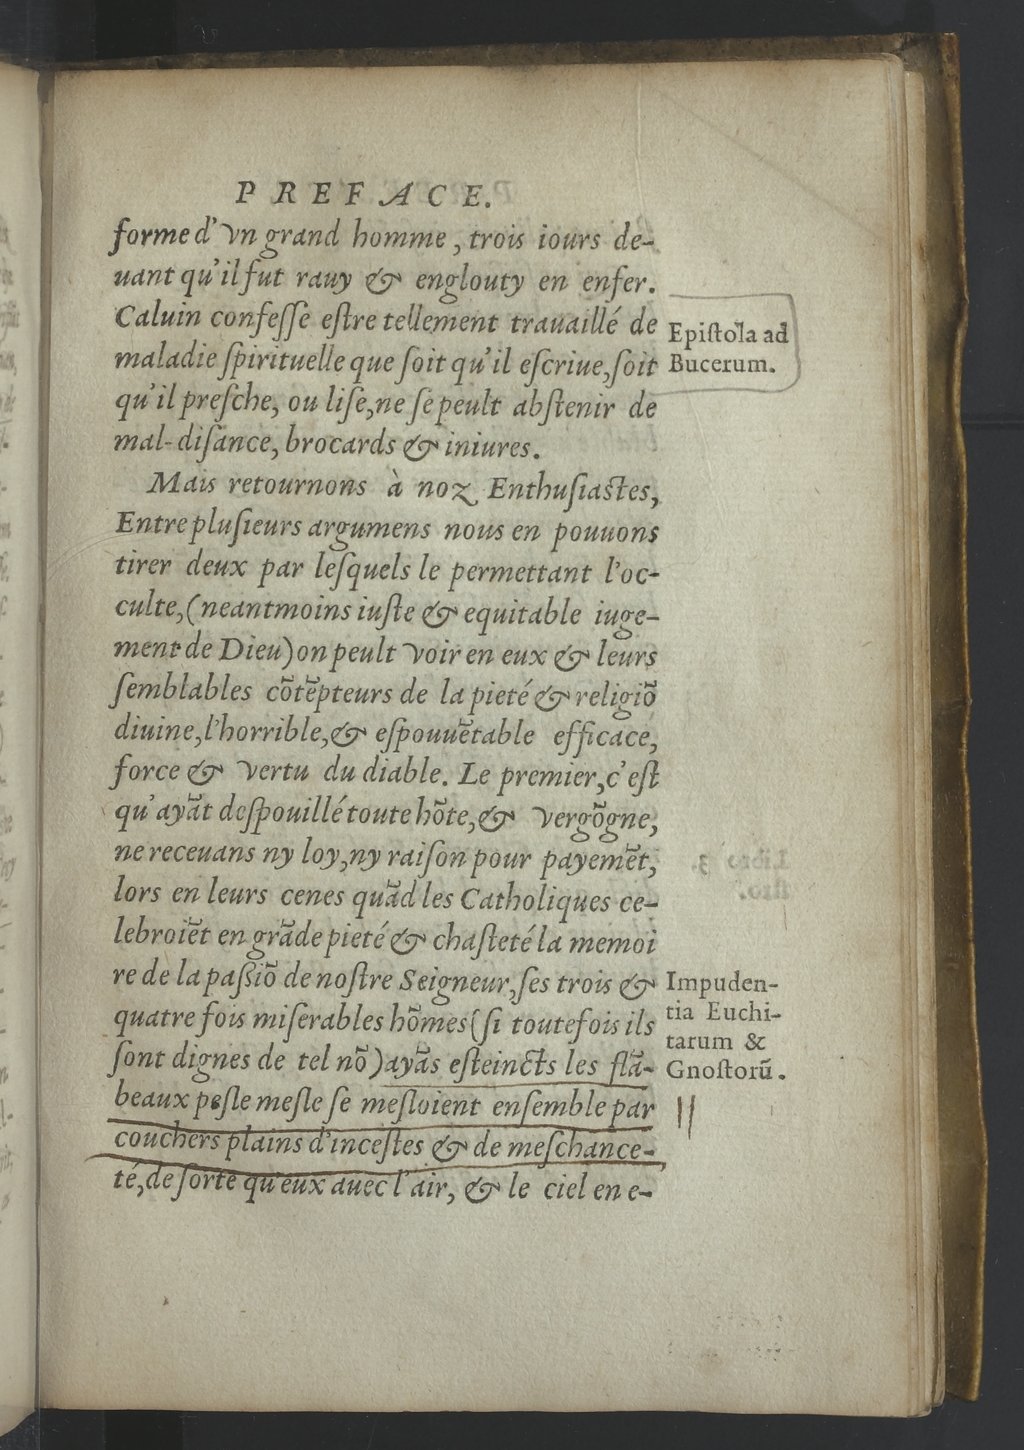 PREFACE.
forme d'vn grand homme, trois iours de-
uant qu'il fut rauy & englouty en enfer.
Caluin confeſſe eſtre tellement trauaillé de
maladie ſpirituelle que ſoit qu'il eſcriue, ſoit
qu'il preſche, ou liſe, ne ſe peult abſtenir de
mal-diſance, brocards & iniures.
Epiſtola ad
Bucerum.
Mais retournons à noz Enthuſiastes,
Entre pluſieurs argumens nous en pouuons
tirer deux par leſquels le permettant l'oc-
culte, (neantmoins iuſte & equitable iuge-
ment de Dieu) on peult voir en eux & leurs
ſemblables cõtẽpteurs de la pieté & religiõ
diuine, l'horrible, & eſpouuẽtable efficace,
force & vertu du diable. Le premier, c'eſt
qu'ayãt deſpouillé toute hõte, & vergõgne,
ne receuans ny loy, ny raiſon pour payemẽt,
lors en leurs cenes quãd les Catholiques ce-
lebroiẽt en grãde pieté & chaſteté la memoi
re de la paſſiõ de noſtre Seigneur, ſes trois &
quatre fois miſerables hõmes (ſi toutefois ils
ſont dignes de tel nõ) ayãs eſteincts les flã-
beaux peſle meſle ſe meſloient enſemble par
couchers plains d'inceſtes & de meſchance-
té, de ſorte qu'eux auec l'air, & le ciel en e-
Impuden-
tia Euchi-
tarum &
Gnoſtorũ.